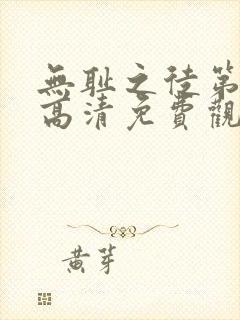 無耻之徒第
高清免費觀
黄芽